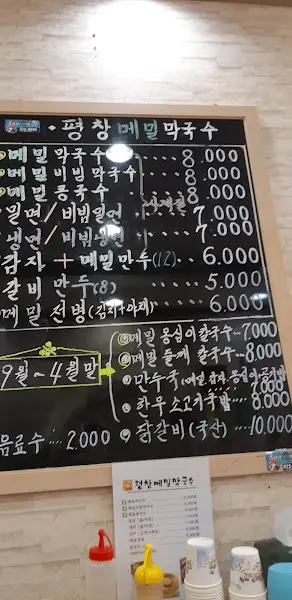 평창메밀막국수
메밀 막국수 ···· 8.000
메밀 비빔 막국수 ···· 8.000
메밀 콩국수 8.000
밀면/비빔밀면 ··· 7.000
냉면/비빔냉면 ··· 7.000
감자 + 메밀만두(12) ·· 6.000
갈비 만두(8) 5.000
메밀 전병(김치+야채) 6.000
9월~4월말
메밀 옹심이 칼국수 ·· 7.000
메밀 들깨 칼국수 ·· 8.000
만두국 7.000
한우 소고기국밥 8.000
닭갈비(국산) ·· 10.000
음료수 ···· 2.000
평창메밀막국수